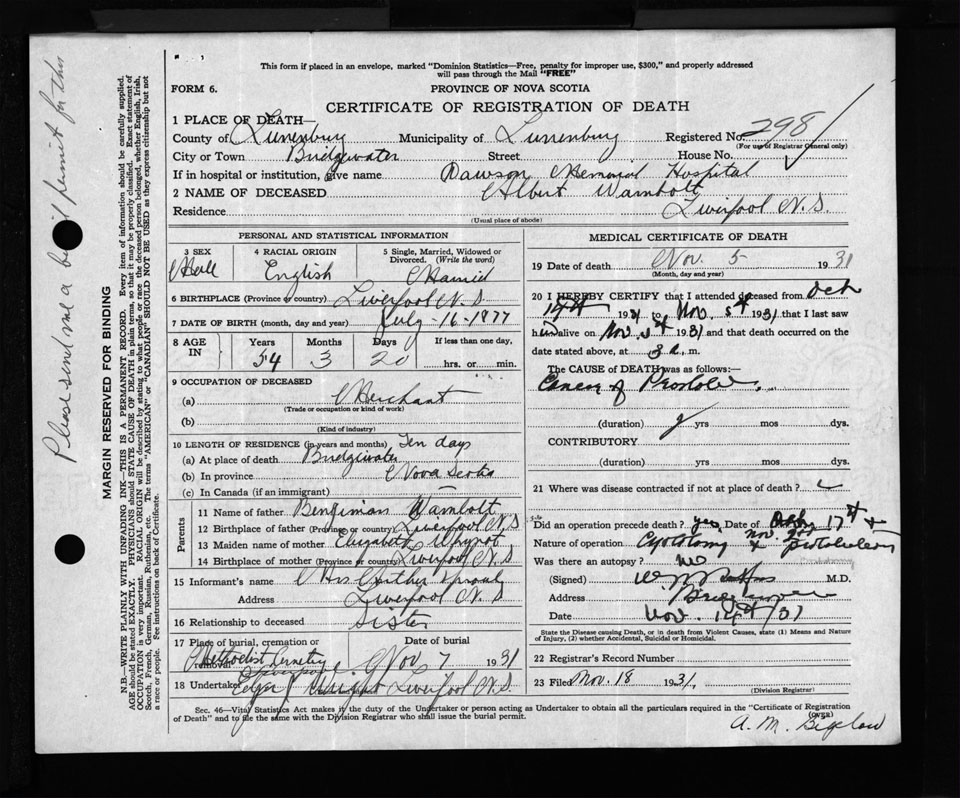 This form if placed in an envelope, marked "Dominion Statistics—Free, penalty for improper use, $300," and properly addressed
will pass through the Mail "FREE"
FORM 6.
PROVINCE OF NOVA SCOTIA
CERTIFICATE OF REGISTRATION OF DEATH
1 PLACE OF DEATH—
County of Lunenburg Municipality of Lunenburg Registered No. 298
(For use of Registrar General only)
City or Town Bridgewater Street House No.
If in hospital or institution, give name Dawson Memorial Hospital
2 NAME OF DECEASED Albert Wambolt
Residence Liverpool N.S.
(Usual place of abode)
PERSONAL AND STATISTICAL INFORMATION
3 SEX 4 RACIAL ORIGIN 5 Single, Married, Widowed or
Divorced. (Write the word)
Male English Married
6 BIRTHPLACE (Province or country) Liverpool N.S
7 DATE OF BIRTH (month, day and year) July-16-1877
8 AGE IN Years Months Days If less than one day,
54 3 20 hrs. or min.
9 OCCUPATION OF DECEASED
(a) Merchant
(Trade or occupation or kind of work)
(b)
(Kind of industry)
10 LENGTH OF RESIDENCE (in years and months) Ten days
(a) At place of death Bridgewater
(b) In province Nova Scotia
(c) In Canada (if an immigrant) —
Parents
11 Name of father Benjiman Wambolt
12 Birthplace of father (Province or country) Liverpool N.S
13 Maiden name of mother Elizabeth Whynot
14 Birthplace of mother (Province or country) Liverpool N.S
15 Informant's name Mrs Arthur Sproul
Address Liverpool N.S
16 Relationship to deceased Sister
17 Place of burial, cremation or removal Date of burial
Methodist Cemetry Liverpool Nov 7 1931
18 Undertaker Edgar J Wright Liverpool N.S.
MEDICAL CERTIFICATE OF DEATH
19 Date of death Nov. 5 1931
(Month, day and year)
20 I HEREBY CERTIFY that I attended deceased from Oct
1931 to Nov. 5th 1931 that I last saw
him alive on Nov. 5th 1931 and that death occurred on
date stated above, at 3 a. m.
The CAUSE OF DEATH was as follows:—
Cancer of Prostate.
(duration) yrs mos dys.
CONTRIBUTORY
(duration) yrs. mos. dys.
21 Where was disease contracted if not at place of death?
Did an operation precede death? yes Date of 17th +
Nov. 2nd
Nature of operation Cystotomy
Was there an autopsy? No
(Signed) M.D.
Address Bridgewater
Date Nov. 14th/31
State the Disease causing Death, or in death from Violent Causes, state (1) Means and Nature
of Injury, (2) whether Accidental, Suicidal or Homicidal.
22 Registrar's Record Number
23 Filed Nov. 18 1931.
(Division Registrar)
Sec. 46—Vital Statistics Act makes it the duty of the Undertaker or person acting as Undertaker to obtain all the particulars required in the "Certificate of Registration
of Death" and to file the same with the Division Registrar who shall issue the burial permit.
(OVER)
A. M. Bigelow
Please send me a burial permit for this
MARGIN RESERVED FOR BINDING
N.B—WRITE PLAINLY WITH UNFADING INK—THIS IS A PERMANENT RECORD. Every item of information should be carefully supplied.
AGE should be stated EXACTLY. PHYSICIANS should STATE CAUSE OF DEATH in plain terms, so that it may be properly classified. Exact statement of
OCCUPATION is very important. RACIAL ORIGIN will be described by stating to what people or race the deceased person belonged, whether English, Irish,
Scotch, French, German, Russian, Ruthenian, etc. The terms "AMERICAN" or "CANADIAN" SHOULD NOT BE USED as they express citizenship but not
a race or people. See instructions on back of Certificate.